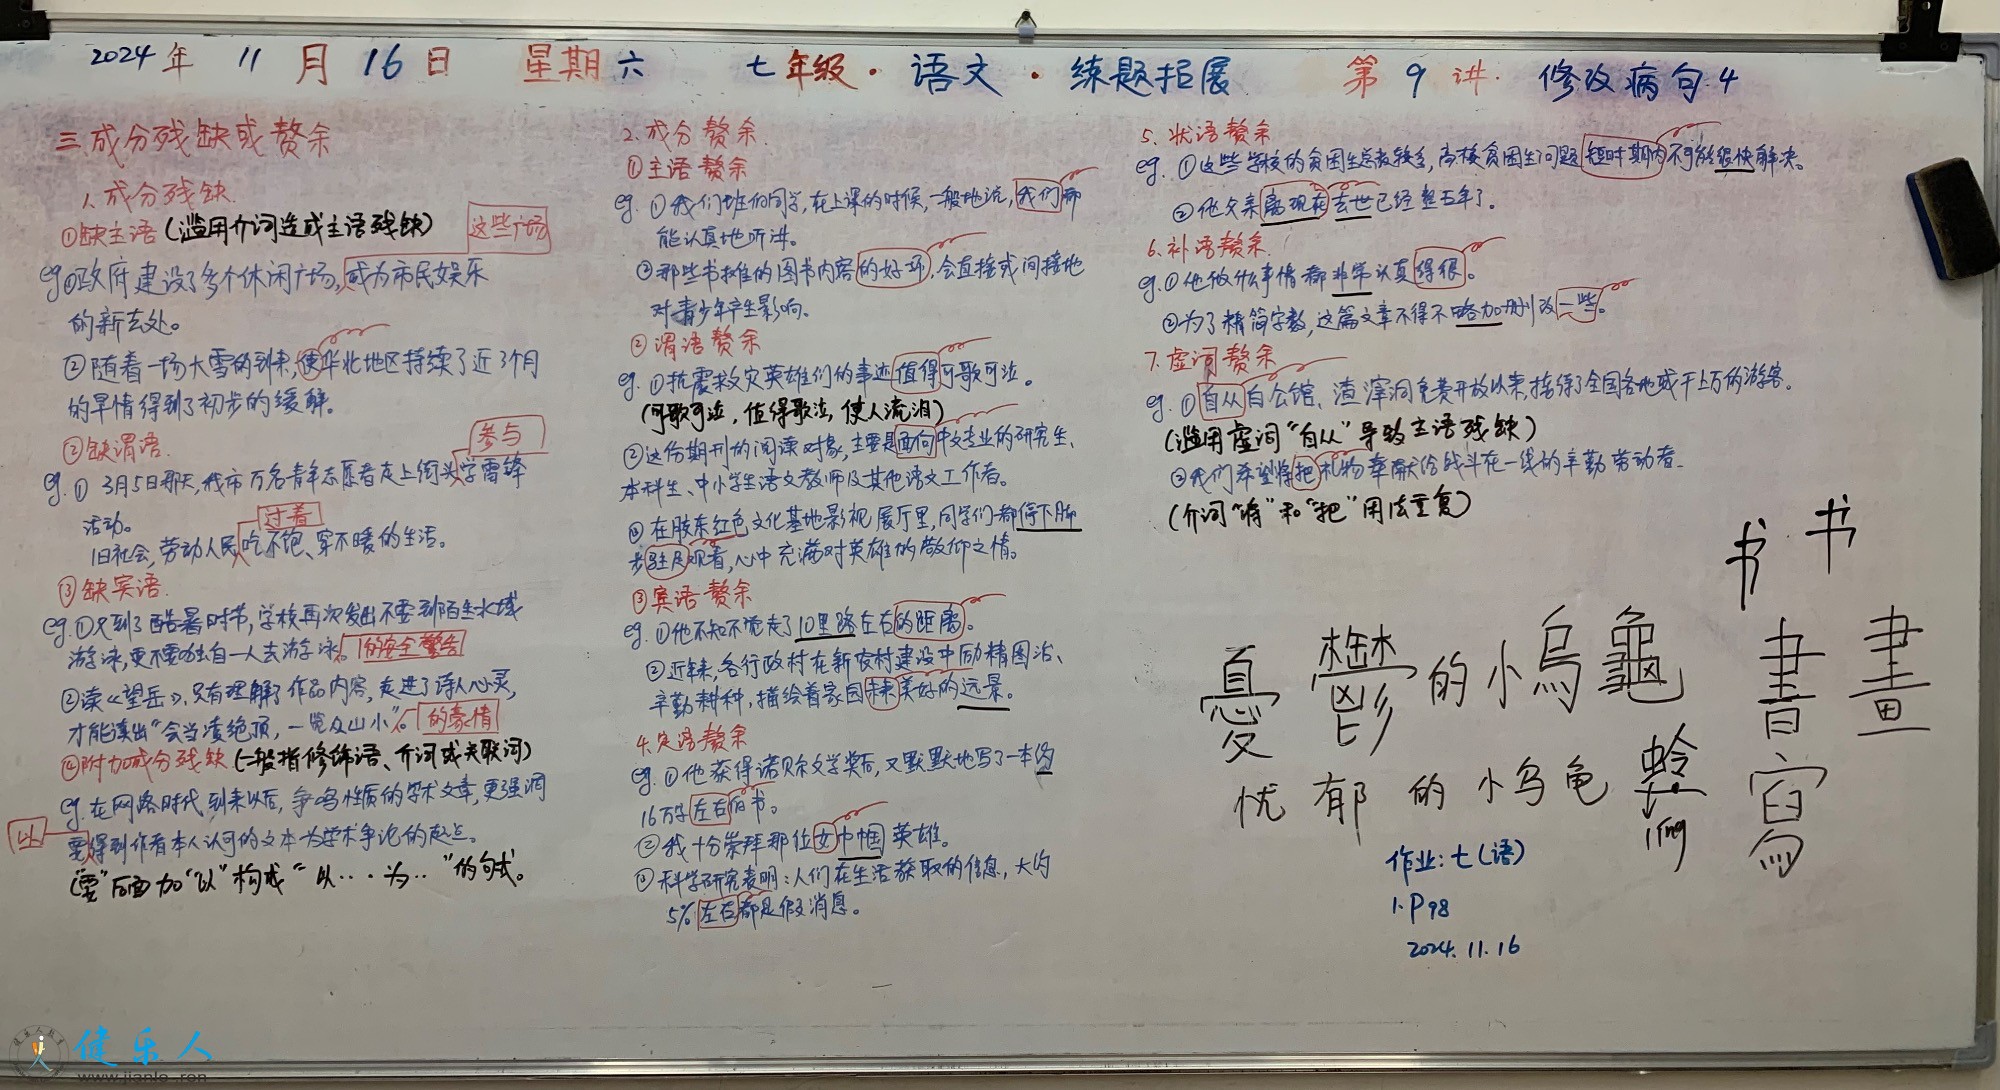 2024年 11月16日 星期六 七年级·语文·练题拓展 第9讲. 修改病句.4
三.成分残缺或赘余
1.成分残缺.
①缺主语(滥用介词造成主语残缺)
这些广场
eg①政府建设了多个休闲广场,成为市民娱乐
的新去处。
②随着一场大雪的到来,使华北地区持续了近3个月
的旱情得到了初步的缓解。
②缺谓语.
参与
eg.① 3月5日那天,我市万名青年志愿者走上街头学雷锋
活动。
过着
旧社会,劳动人民吃不饱、穿不暖的生活。
③缺宾语.
eg.①又到了酷暑时节,学校再次发出不要到陌生水域
游泳,更不要独自一人去游泳。的安全警告
②读《望岳》,只有理解了作品内容,走进了诗人心灵,
才能读出“会当凌绝顶,一览众山小”。的豪情
④附加成分残缺(一般指修饰语、介词或关联词)
eg.在网络时代到来以后,争鸣性质的学术文章,更强调
以
要得到作者本人认可的文本为学术争论的起点。
(“要”后面加“以”构成“以···为··”的句式。
2.成分赘余.
①主语赘余
eg.①我们班的同学,在上课的时候,一般地说,我们都
能认真地听讲。
②那些书摊的图书内容的好坏,会直接或间接地
对青少年产生影响。
②谓语赘余
eg.①抗震救灾英雄们的事迹值得可歌可泣。
(可歌可泣,值得歌泣,使人流泪)
②这份期刊的阅读对象,主要是面向中文专业的研究生、
本科生、中小学生语文教师及其他语文工作者。
③在胶东红色文化基地影视展厅里,同学们都停下脚
步驻足观看,心中充满对英雄的敬仰之情。
③宾语赘余
eg.①他不知不觉走了10里路左右的距离。
②近年来,各行政村在新农村建设中励精图治、
辛勤耕种,描绘着家园未来美好的远景。
4.定语赘余
eg.①他获得诺贝尔文学奖后,又默默地写了一本约
16万字左右的书。
②我十分崇拜那位女巾帼英雄。
③科学研究表明:人们在生活获取的信息,大约
5%左右都是假消息。
5.状语赘余
eg.①这些学校的贫困生总数较多,高校贫困生问题短时期内不可能很快解决。
②他父亲离现在去世已经整五年了。
6.补语赘余.
eg.①他做什么事情都非常认真得很。
②为了精简字数,这篇文章不得不略加删改一些。
7.虚词赘余
eg.①自从白公馆、渣滓洞免费开放以来,接待了全国各地成千上万的游客.
(滥用虚词“自从”导致主语残缺)
②我们希望将把礼物奉献给战斗在一线的辛勤劳动者.
(介词“将”和“把”用法重复)
书 书
憂鬱的小烏龜 書 畫
忧郁的小乌龟
líng
作业:七(语)
1.P98
2024.11.16
健乐人
www.jianle.ren